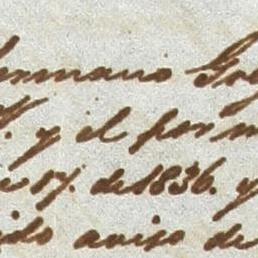 ermano Go
y el por m
17. de 1836. y
ido aviso de